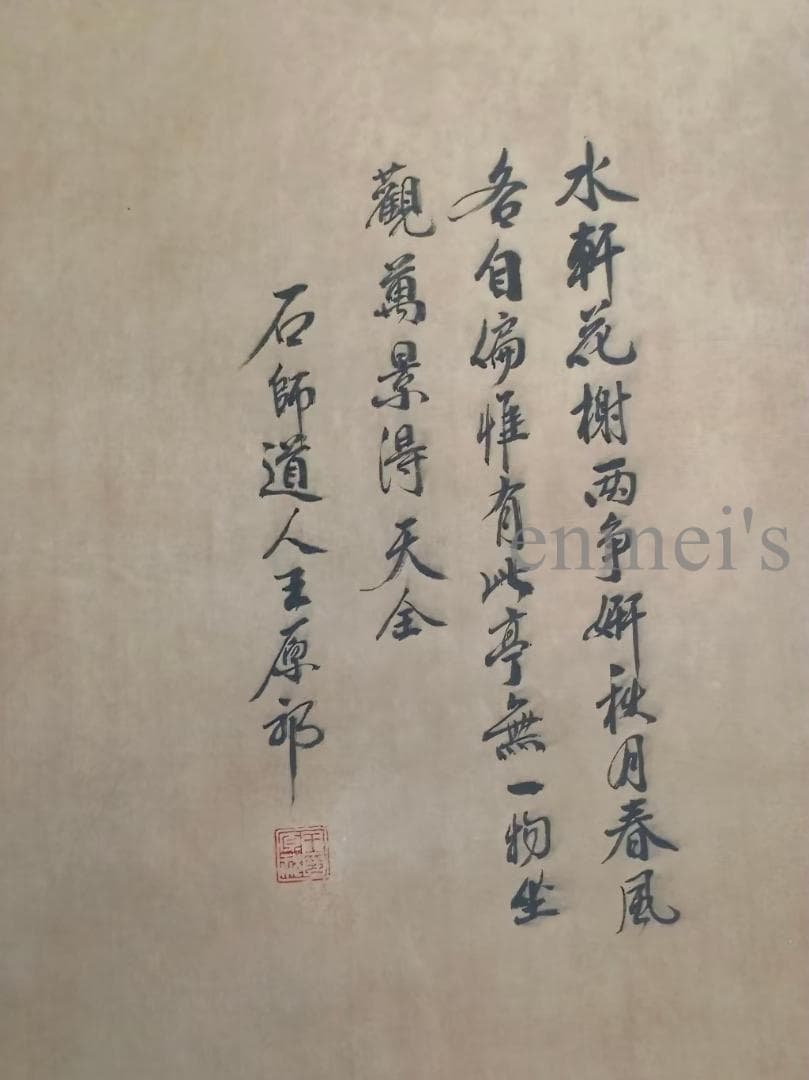 水軒花榭兩爭妍秋月春風
各自偏惟有此亭無一物坐
觀萬景淂天全
石師道人王原祁
enmei's